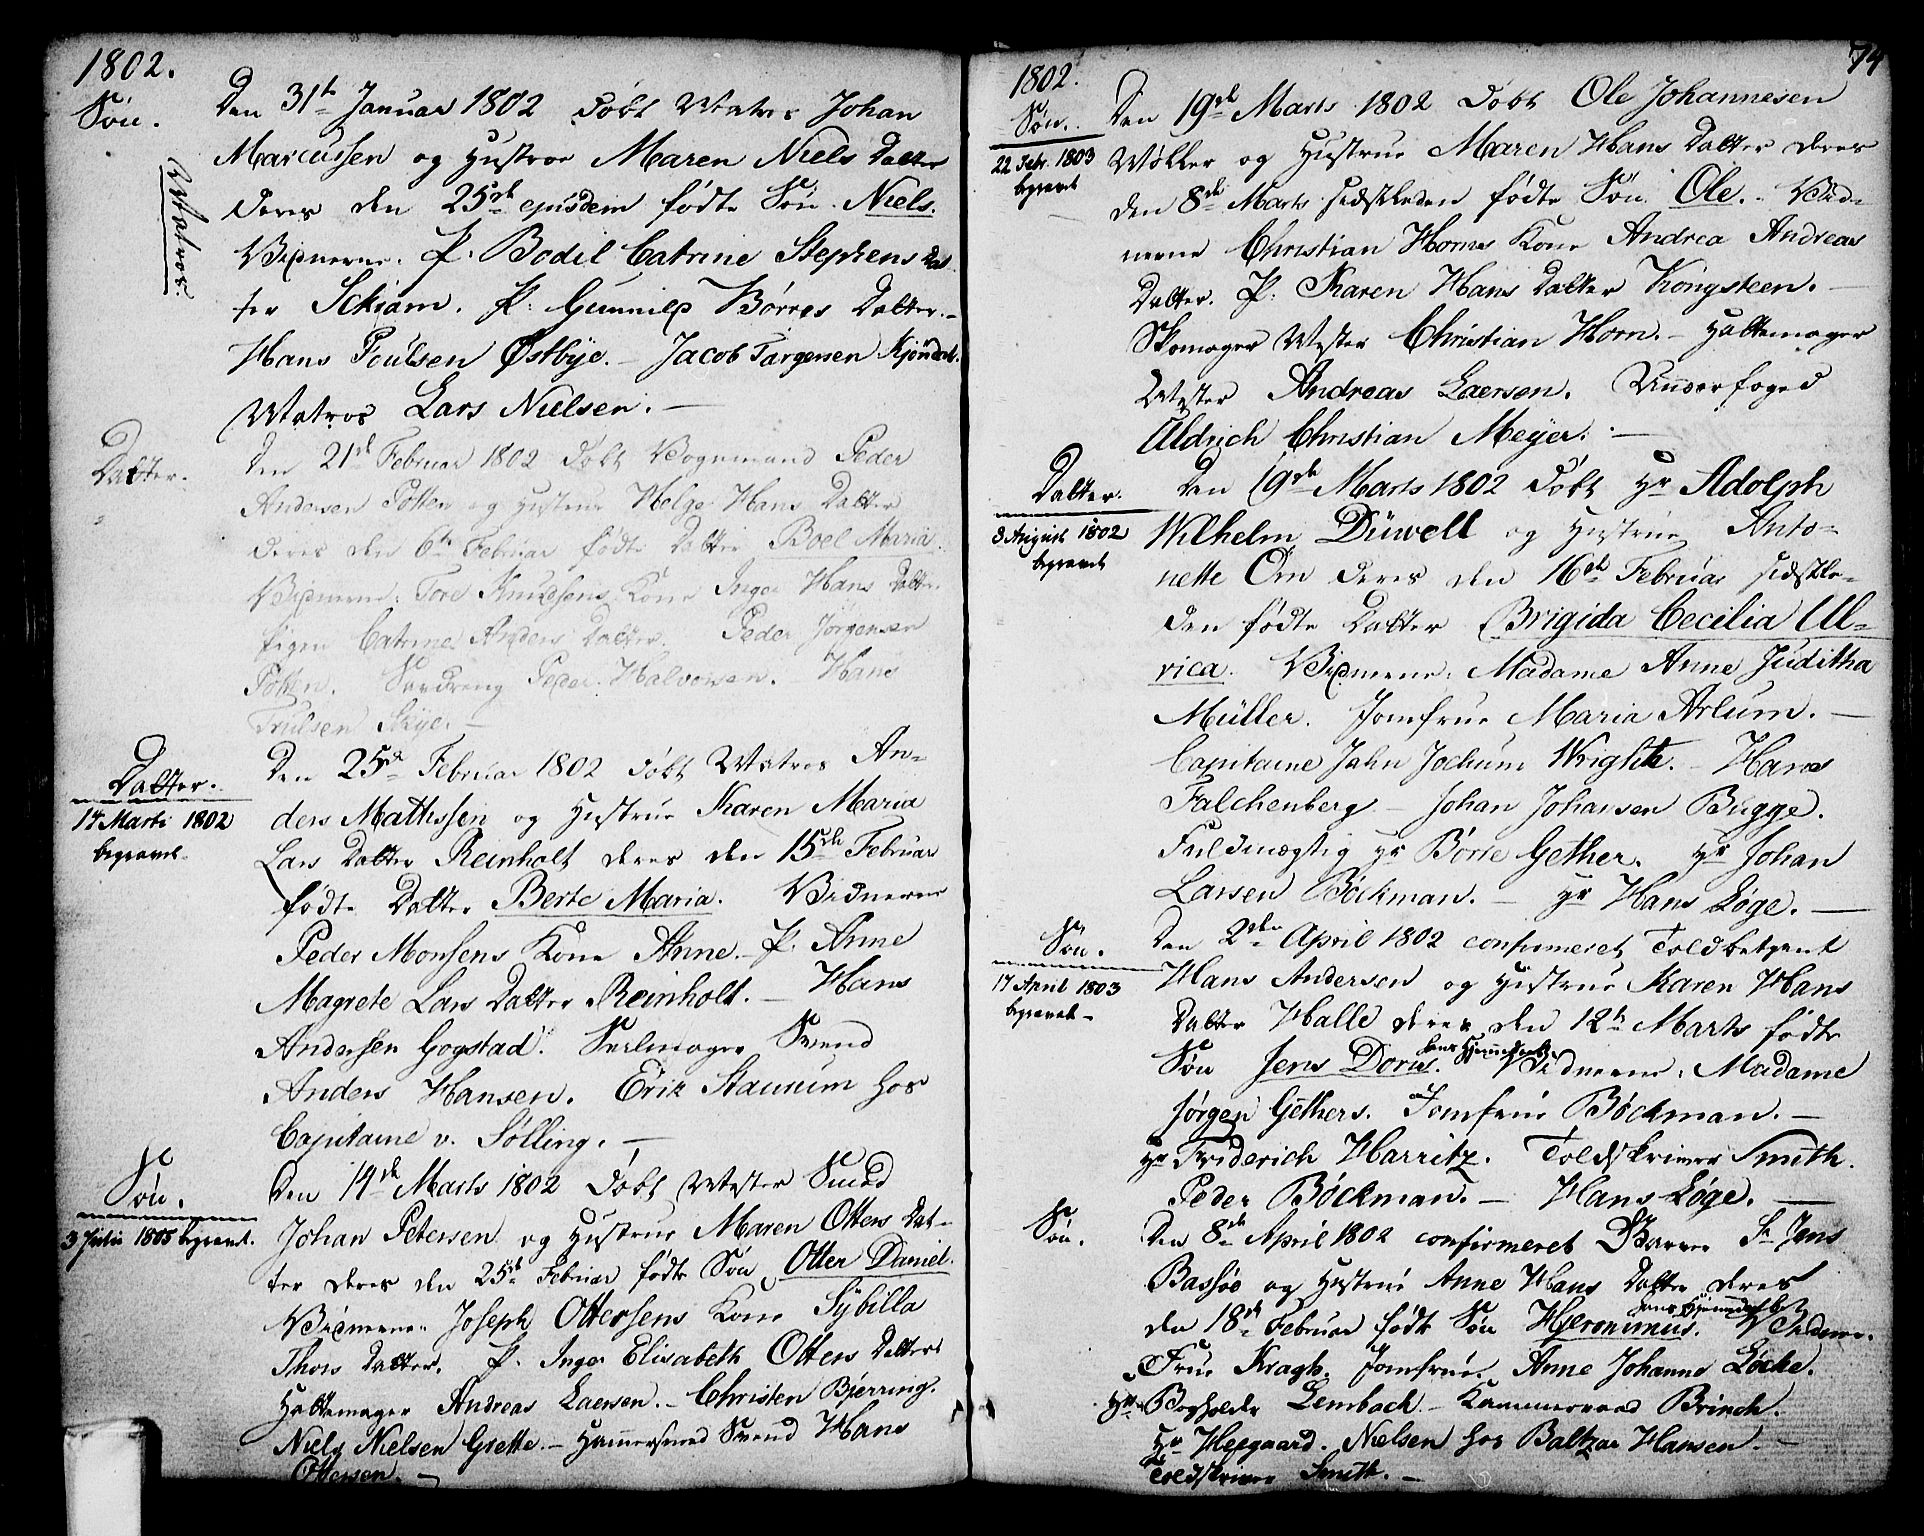 1802.
Søn.
Matros.
Den 31te Januar 1802 Døbt Matros Johan
Marcussen og Hustrue Maren Niels Datter
deres den 25de ejusdem fødte Søn Niels.
Vidnerne. P. Bodil Catrine Stephens Dat
ter Schiam. P: Gunnild Børres Datter.-
Hans Poulsen Østbye. - Jacob Targersen Kjøndal.
Matros Lars Nielsen. -
Datter.
Den 21de Februar 1802 Døbt Bognmand Peder
Andersen Potten og Hustrue Helge Hans Datter
deres den 6te Februar fødte Datter Boel Maria.
Vidnerne: Tore Knudsens Kone Inger Hans Datter.
Pigen Catrine Anders Datter. Peder Jørgensen
Potten. Peder Halvorsen. - Hans
Trulsen Skye. -
Datter.
14 Marti 1802
begravet.
Den 25de Februar 1802 Døbt Matros An-
ders Mathissen og Hustrue Karen Maria
Lars Datter Reinholt deres den 15de Februar
fødte Datter Berte Maria. Vidnerne
Peder Monsens Kone Anne. - P. Anne
Magrete Lars Datter Reinholt. - Hans
Andersen Gogstad. Seilmager Svend
Anders Hansen. Erik Staurum hos
Capitaine v. Sølling. -
Søn.
3 Julii 1805 begravet.
Den 14de Marts 1802 Døbt Mester Smed
Johan Petersen og Hustrue Maren Ottens Dat-
ter deres den 25de Februar fødte Søn Otter Daniel.
Vidnerne. Joseph Ottersens Kone Sybilla
Thors Datter. P. Inger Elisabeth Ottens Datter
Hattemager Andreas Laersen. - Christen Bjerring.
Niels Nielsen Grette. - Hammersmed Svend Hans
Ottersen. -
74
1802.
Søn.
22 Febr. 1803
begravet
Den 19de Marts 1802 Døbt Ole Johannesen
Møller og Hustrue Maren Hans Datter deres
den 8de Marts sidstleden fødte Søn Ole. - Vid-
nerne Christian Horns Kone Andrea Andreas
Datter. P: Karen Hans Datter Kongsteen. -
Skomager Mester Christian Horn. - Hattemager
Mester Andreas Laersen. Underfoged
Uldrich Christian Meyer. -
Datter.
3 August 1802
begravet
Den 19de Marts 1802 Døbt Hr Adolph
Wilhelm Düwell og Hustrue Anto-
nette Om deres den 16de Februar sidstle-
den fødte Datter Brigida Cecilia Ul-
rica. Vidnerne: Madame Anne Juditha
Müller. Jomfrue Maria Arlum. -
Capitaine Jahn Jochum Wright. - Hans
Falchenberg - Johan Johansen Bugge.
Fuldmægtig Hr Børre Gether. Hr Johan
Larsen Bøckman. - Hr Hans Løge. -
Søn.
17 April 1803
begravet -
Den 2den April 1802 confirmeret Toldbetjent
Hans Andersen og Hustrue Karen Hans
Datter Halle deres den 12te Marts fødte
Søn Jens Dorus. hans Hjemmedøbt. Vidnerne: Madame
Jørgen Gethers. Jomfrue Bøckman. -
Hr Friderich Harritz. Toldskriver Smith.
Peder Bøckman. - Hans Løge. -
Søn.
Den 8de April 1802 confirmeret Sr Jens
Bassøe og Hustrue Anne Hans Datter deres
den 18de Februar fødte Søn Hieronimus. Vidne.
Frue Kragh. Jomfrue Anne Johanne Løche.
Hr Bogholder Lembach - Kammerraad Brinch.
Hr Hesgaard. Nielsen hos Baltzar Hansen. -
Toldskriver Smith. -